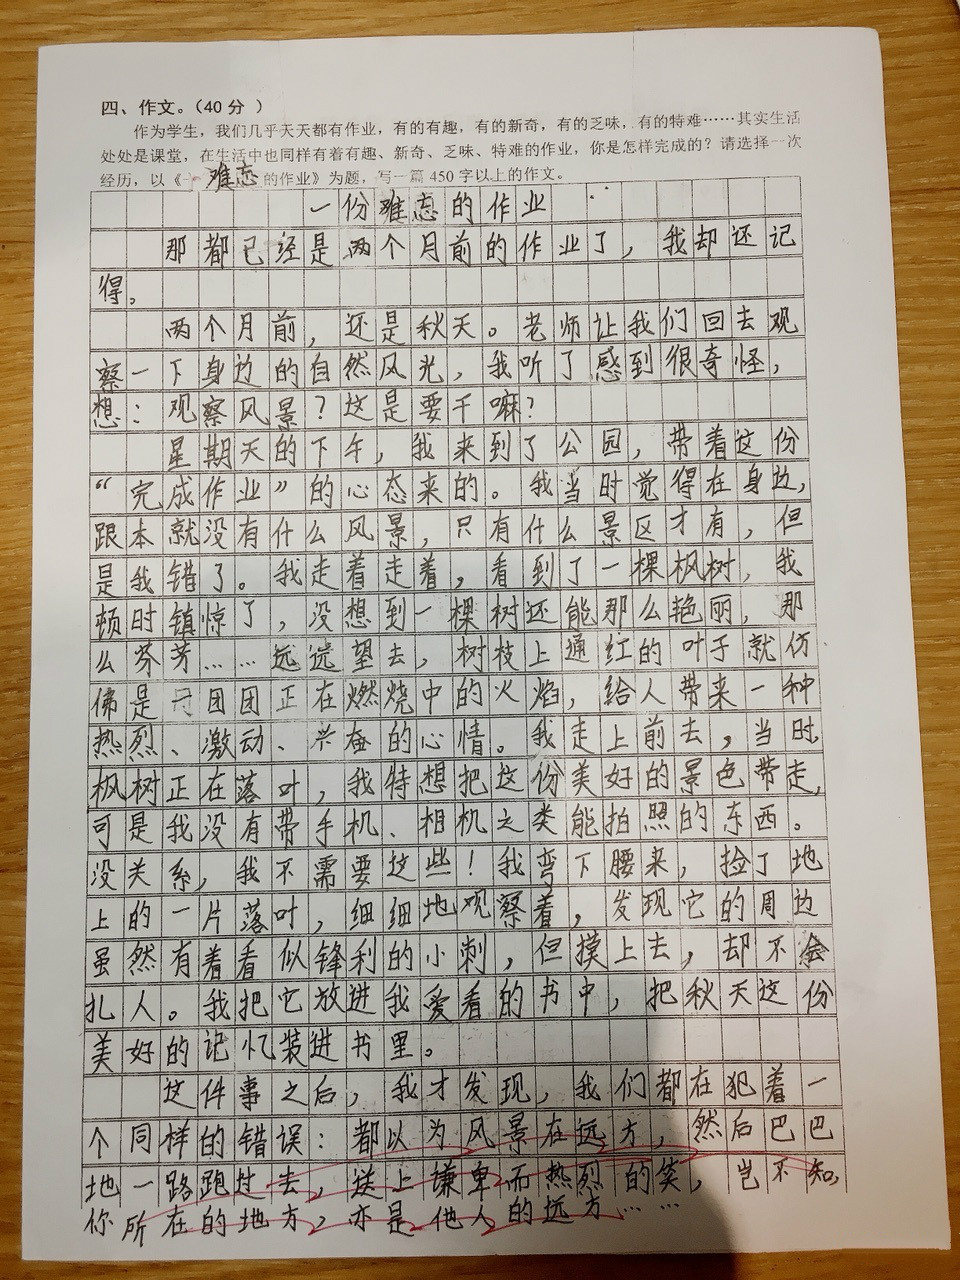 四、作文。（40 分 ）
作为学生，我们几乎天天都有作业，有的有趣，有的新奇，有的乏味，有的特难……其实生活
处处是课堂，在生活中也同样有着有趣、新奇、乏味、特难的作业，你是怎样完成的？请选择一次
经历，以《一 难忘 的作业》为题，写一篇 450 字以上的作文。
一份难忘的作业
那都已经是两个月前的作业了，我却还记
得。
两个月前，还是秋天。老师让我们回去观
察一下身边的自然风光，我听了感到很奇怪，
想：观察风景？这是要干嘛？
星期天的下午，我来到了公园，带着这份
“完成作业”的心态来的。我当时觉得在身边，
跟本就没有什么风景，只有什么景区才有，但
是我错了。我走着走着，看到了一棵枫树，我
顿时镇惊了，没想到一棵树还能那么艳丽，那
么芬芳……远远望去，树枝上通红的叶子就仿
佛是团团正在燃烧中的火焰，给人带来一种
热烈、激动、兴奋的心情。我走上前去，当时，
枫树正在落叶，我特想把这份美好的景色带走，
可是我没有带手机、相机之类能拍照的东西。
没关系，我不需要这些！我弯下腰来，捡了地
上的一片落叶，细细地观察着，发现它的周边
虽然有着看似锋利的小刺，但摸上去，却不会
扎人。我把它放进我爱看的书中，把秋天这份
美好的记忆装进书里。
这件事之后，我才发现，我们都在犯着一
个同样的错误：都以为风景在远方，然后巴巴
地一路跑过去，送上谦卑而热烈的笑，岂不知，
你所在的地方，亦是他人的远方……